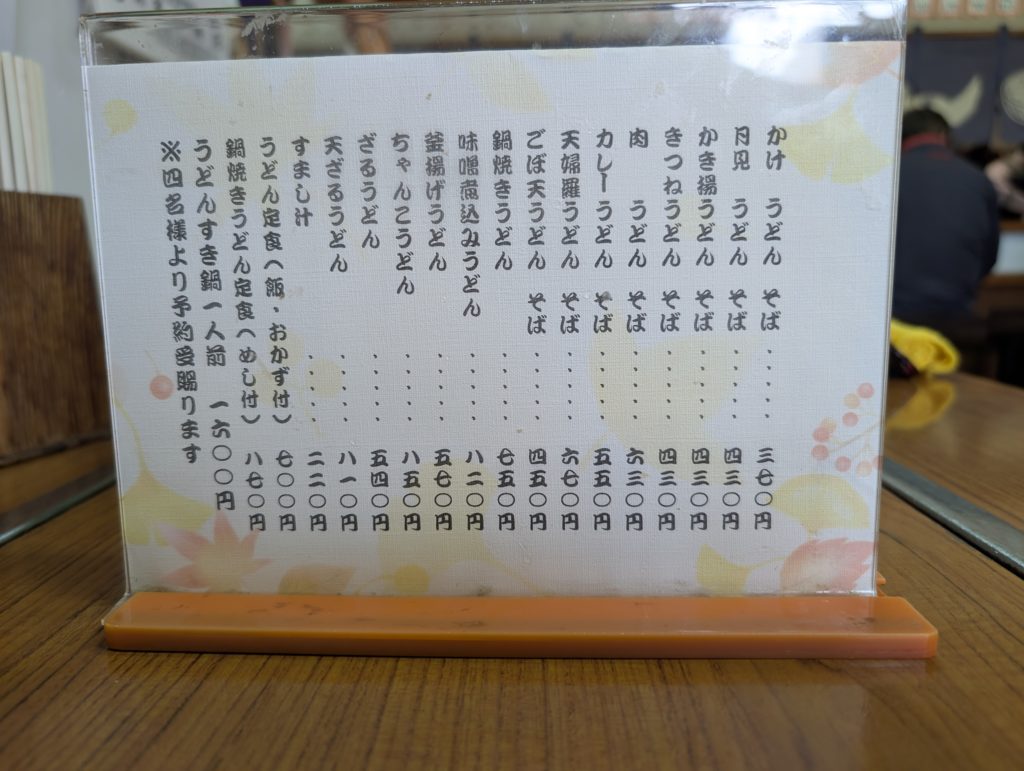 かけ　うどん　そば・・・・・三七〇円
月見　うどん　そば・・・・・四三〇円
かき揚うどん　そば・・・・・四三〇円
きつねうどん　そば・・・・・四三〇円
肉　　うどん　そば・・・・・六三〇円
カレーうどん　そば・・・・・五五〇円
天婦羅うどん　そば・・・・・六七〇円
ごぼ天うどん　そば・・・・・四五〇円
鍋焼きうどん　・・・・・七五〇円
味噌煮込みうどん　・・・・・八二〇円
釜揚げうどん　・・・・・五七〇円
ちゃんこうどん　・・・・・八五〇円
ざるうどん　・・・・・五四〇円
天ざるうどん　・・・・・八一〇円
すまし汁　・・・・・二二〇円
うどん定食（飯・おかず付）七〇〇円
鍋焼きうどん定食（めし付）八七〇円
うどんすき鍋一人前　一六〇〇円
※四名様より予約受賜ります